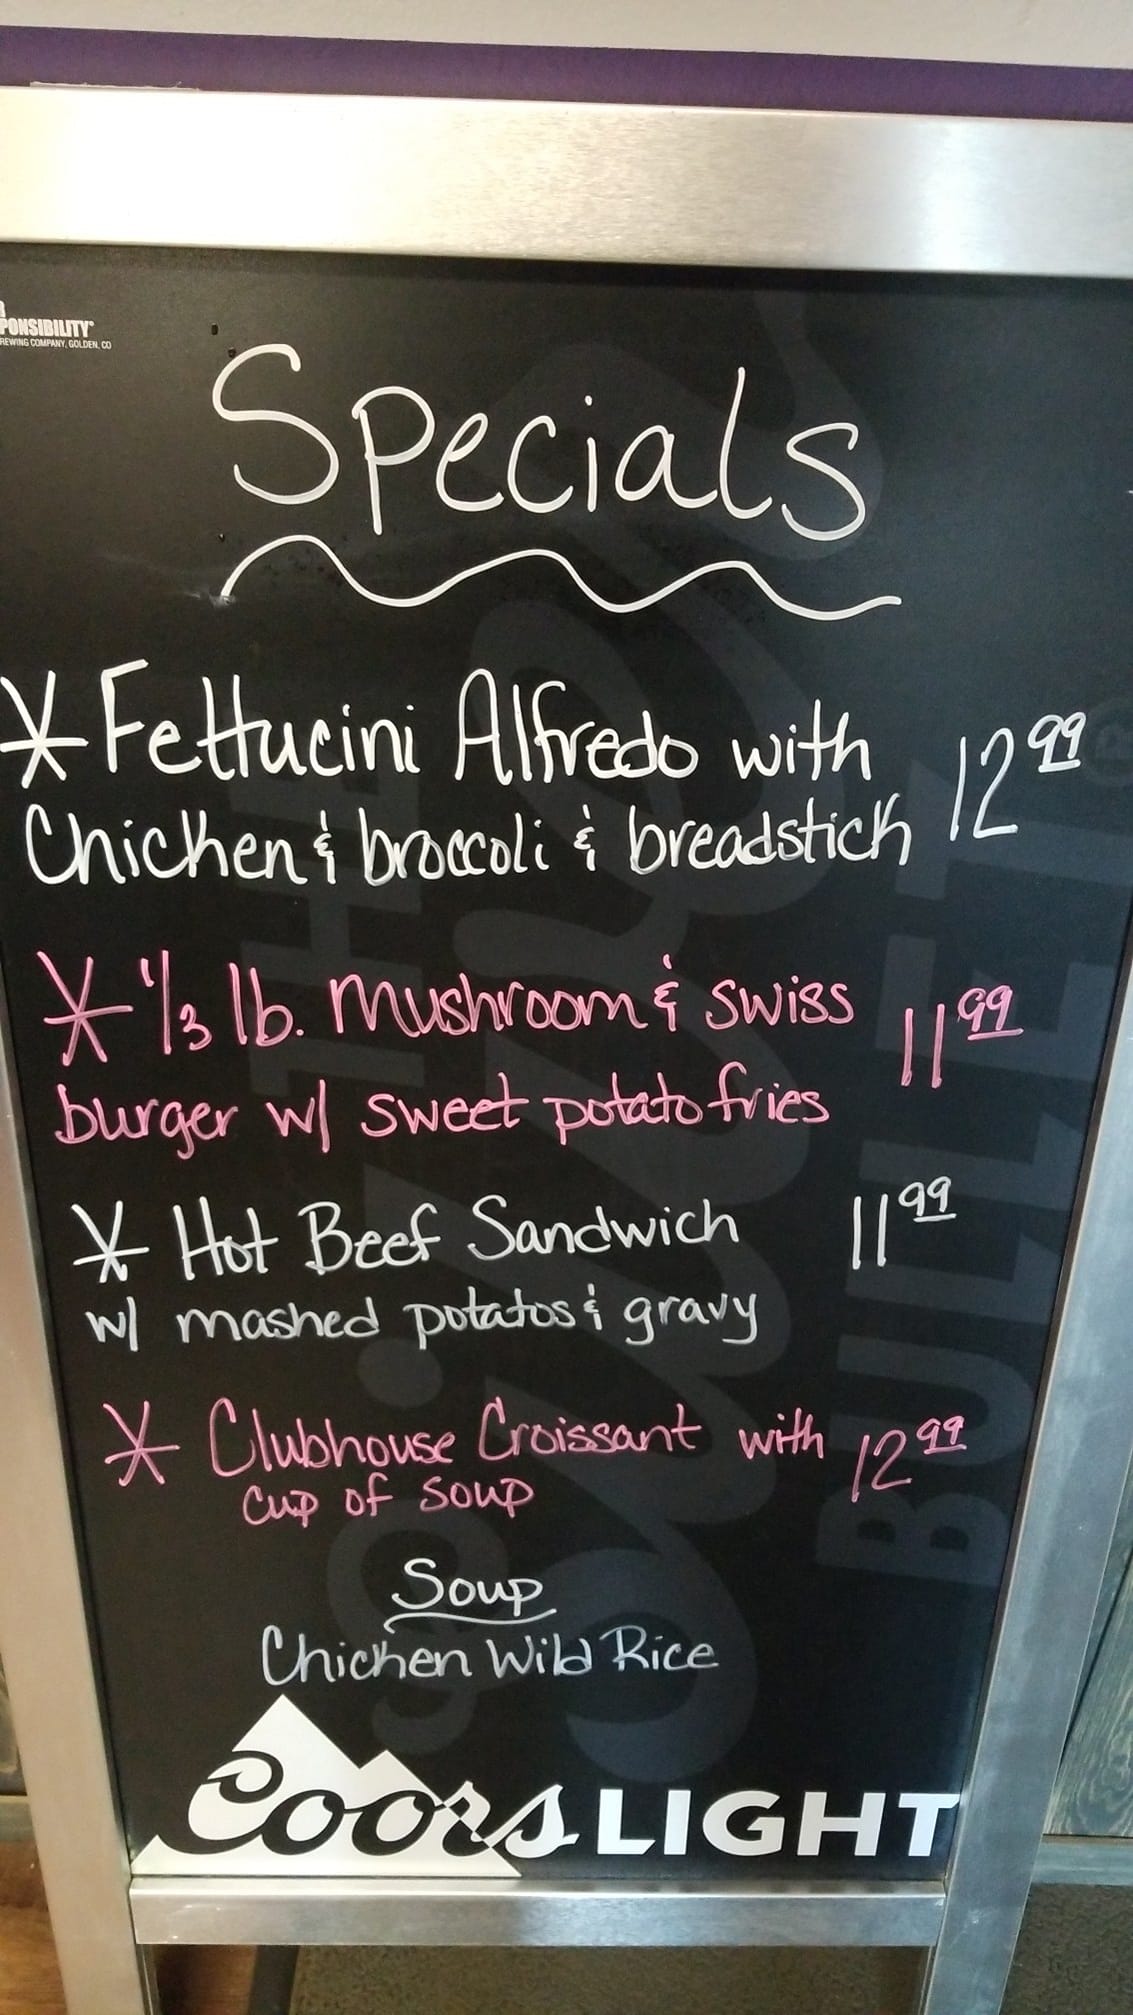 PONSIBILITY
REWING COMPANY, GOLDEN, CO
Specials
* Fettucini Alfredo with 12.99
Chicken & broccoli & breadstick
* 1/3 lb. Mushroom & Swiss 11.99
burger w/ sweet potato fries
* Hot Beef Sandwich 11.99
w/ mashed potatos & gravy
* Clubhouse Croissant with 12.99
cup of soup
Soup
Chicken Wild Rice
Coors LIGHT
THE
Silver
BULLET